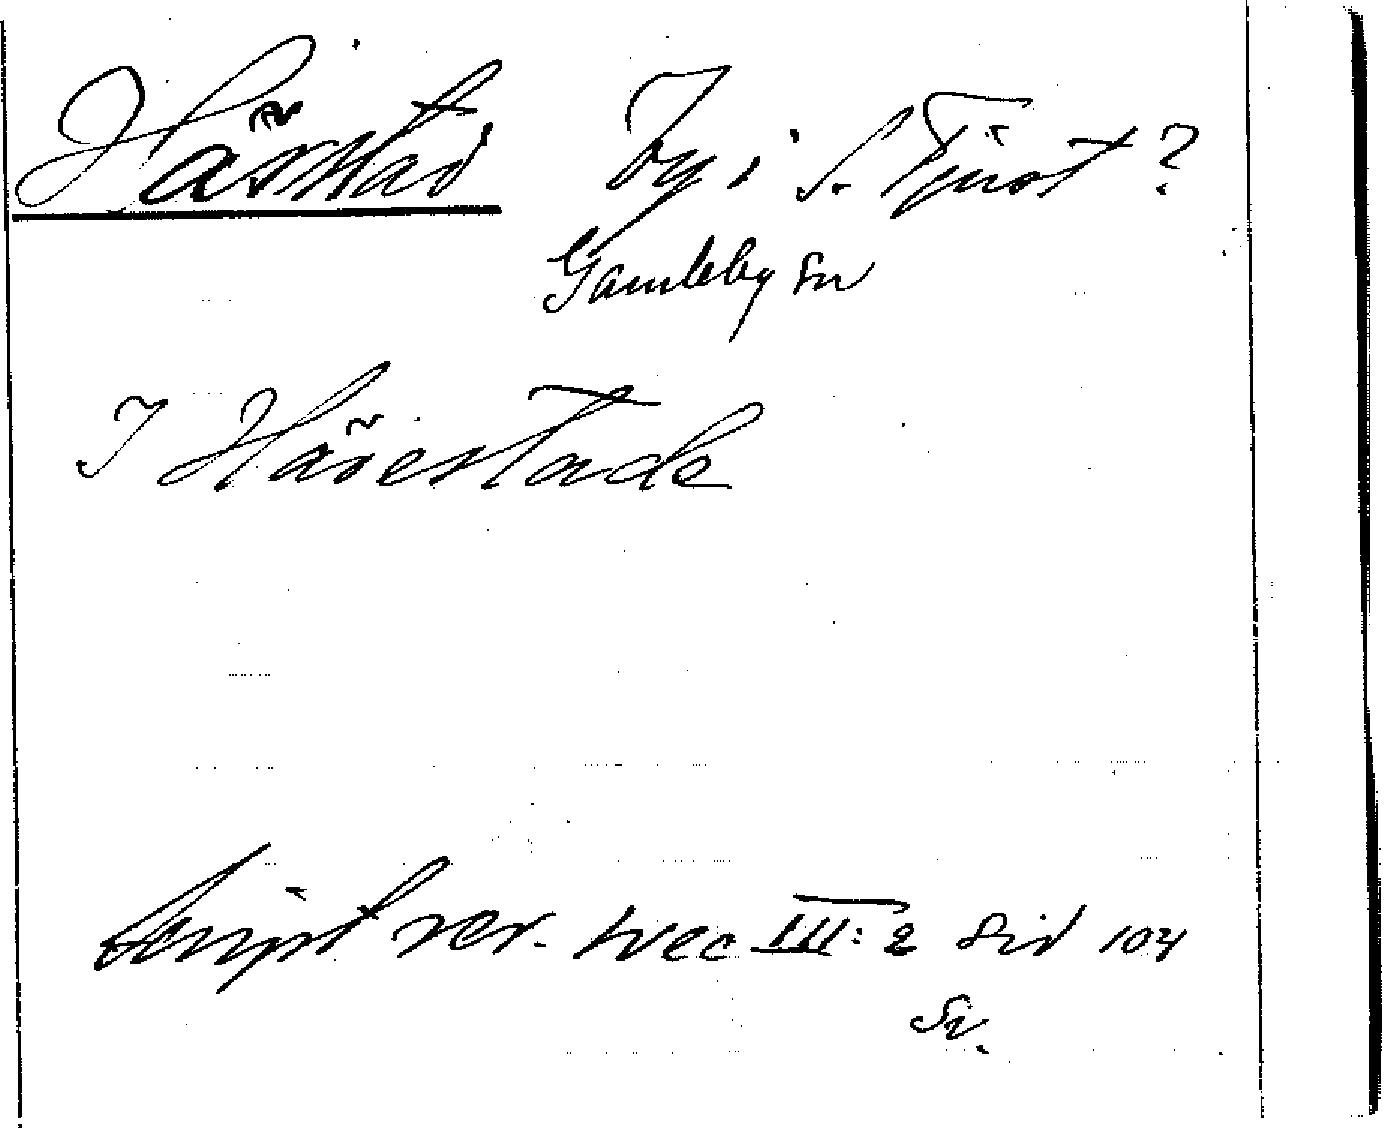 Hässtad by i S. Tjust?
Gamleby sn
I Hävestade
Script rer. svec III: 2 sid 104
Sv.